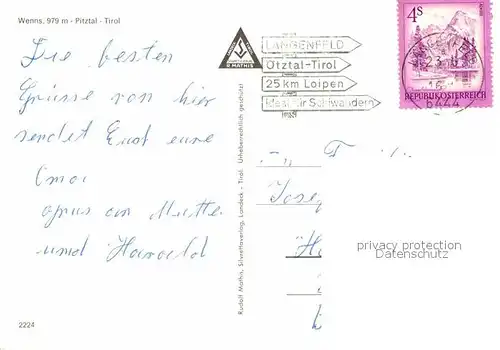 Wenns, 979 m - Pitztal - Tirol
Die besten
Grüsse von hier
sendet Euch eure
Oma
an Mutter
und Harald
2224
Rudolf Mathis, Silvrettaverlag, Landeck - Tirol. Urheberrechtlich geschützt
R. MATHIS
LÄNGENFELD
Ötztal-Tirol
25 km Loipen
Ideal für Schiwandern
4S
6444
REPUBLIK ÖSTERREICH
F
Josef
privacy protection
Datenschutz